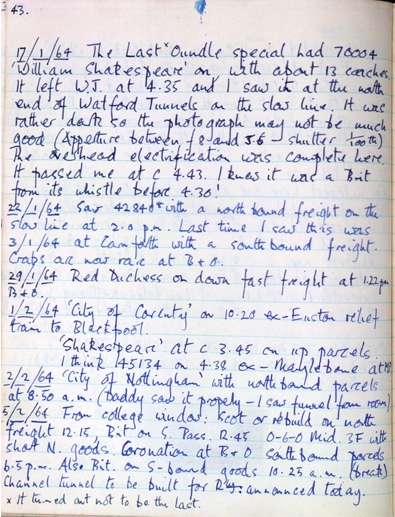 43.
17/1/64 The Last˟ Oundle special had 70004
'William Shakespeare' on, with about 13 coaches.
It left W.J. at 4.35 and I saw it at the north
end of Watford Tunnels on the slow line. It was
rather dark so the photograph may not be much
good (Apperture between f8 and 5.6 - shutter 100th)
The overhead electrification was complete here.
It passed me at c 4.43. I knew it was a Brit
from its whistle before 4.30!
22/1/64 Saw 42840* with a north bound freight on the
slow line at 2.0 p.m. Last time I saw this was
3/1/64 at Carnforth with a southbound freight.
Crabs are now rare at B & O.
29/1/64 Red Duchess on down fast freight at 1.22pm
B & O.
1/2/64 'City of Coventry' on 10.20 ex-Euston relief
train to Blackpool.
'Shakespeare' at c 3.45 on up parcels.
I think 45134 on 4.38 ex-Marylebone at
2/2/64 'City of Nottingham' with northbound parcels
at 8.50 a.m. (Daddy saw it propely - I saw funnel from room)
5/2/64 From college window: Scot or rebuild on north
freight 12.15, Brit on S. Pass. 12.45 0-6-0 Mid. 3F with
short N. goods. Coronation at B & O southbound parcels
6.5 p.m. Also Brit. on S-bound goods 10.25 a.m. (break)
Channel tunnel to be built for Rly: announced today.
x It turned out not to be the last.